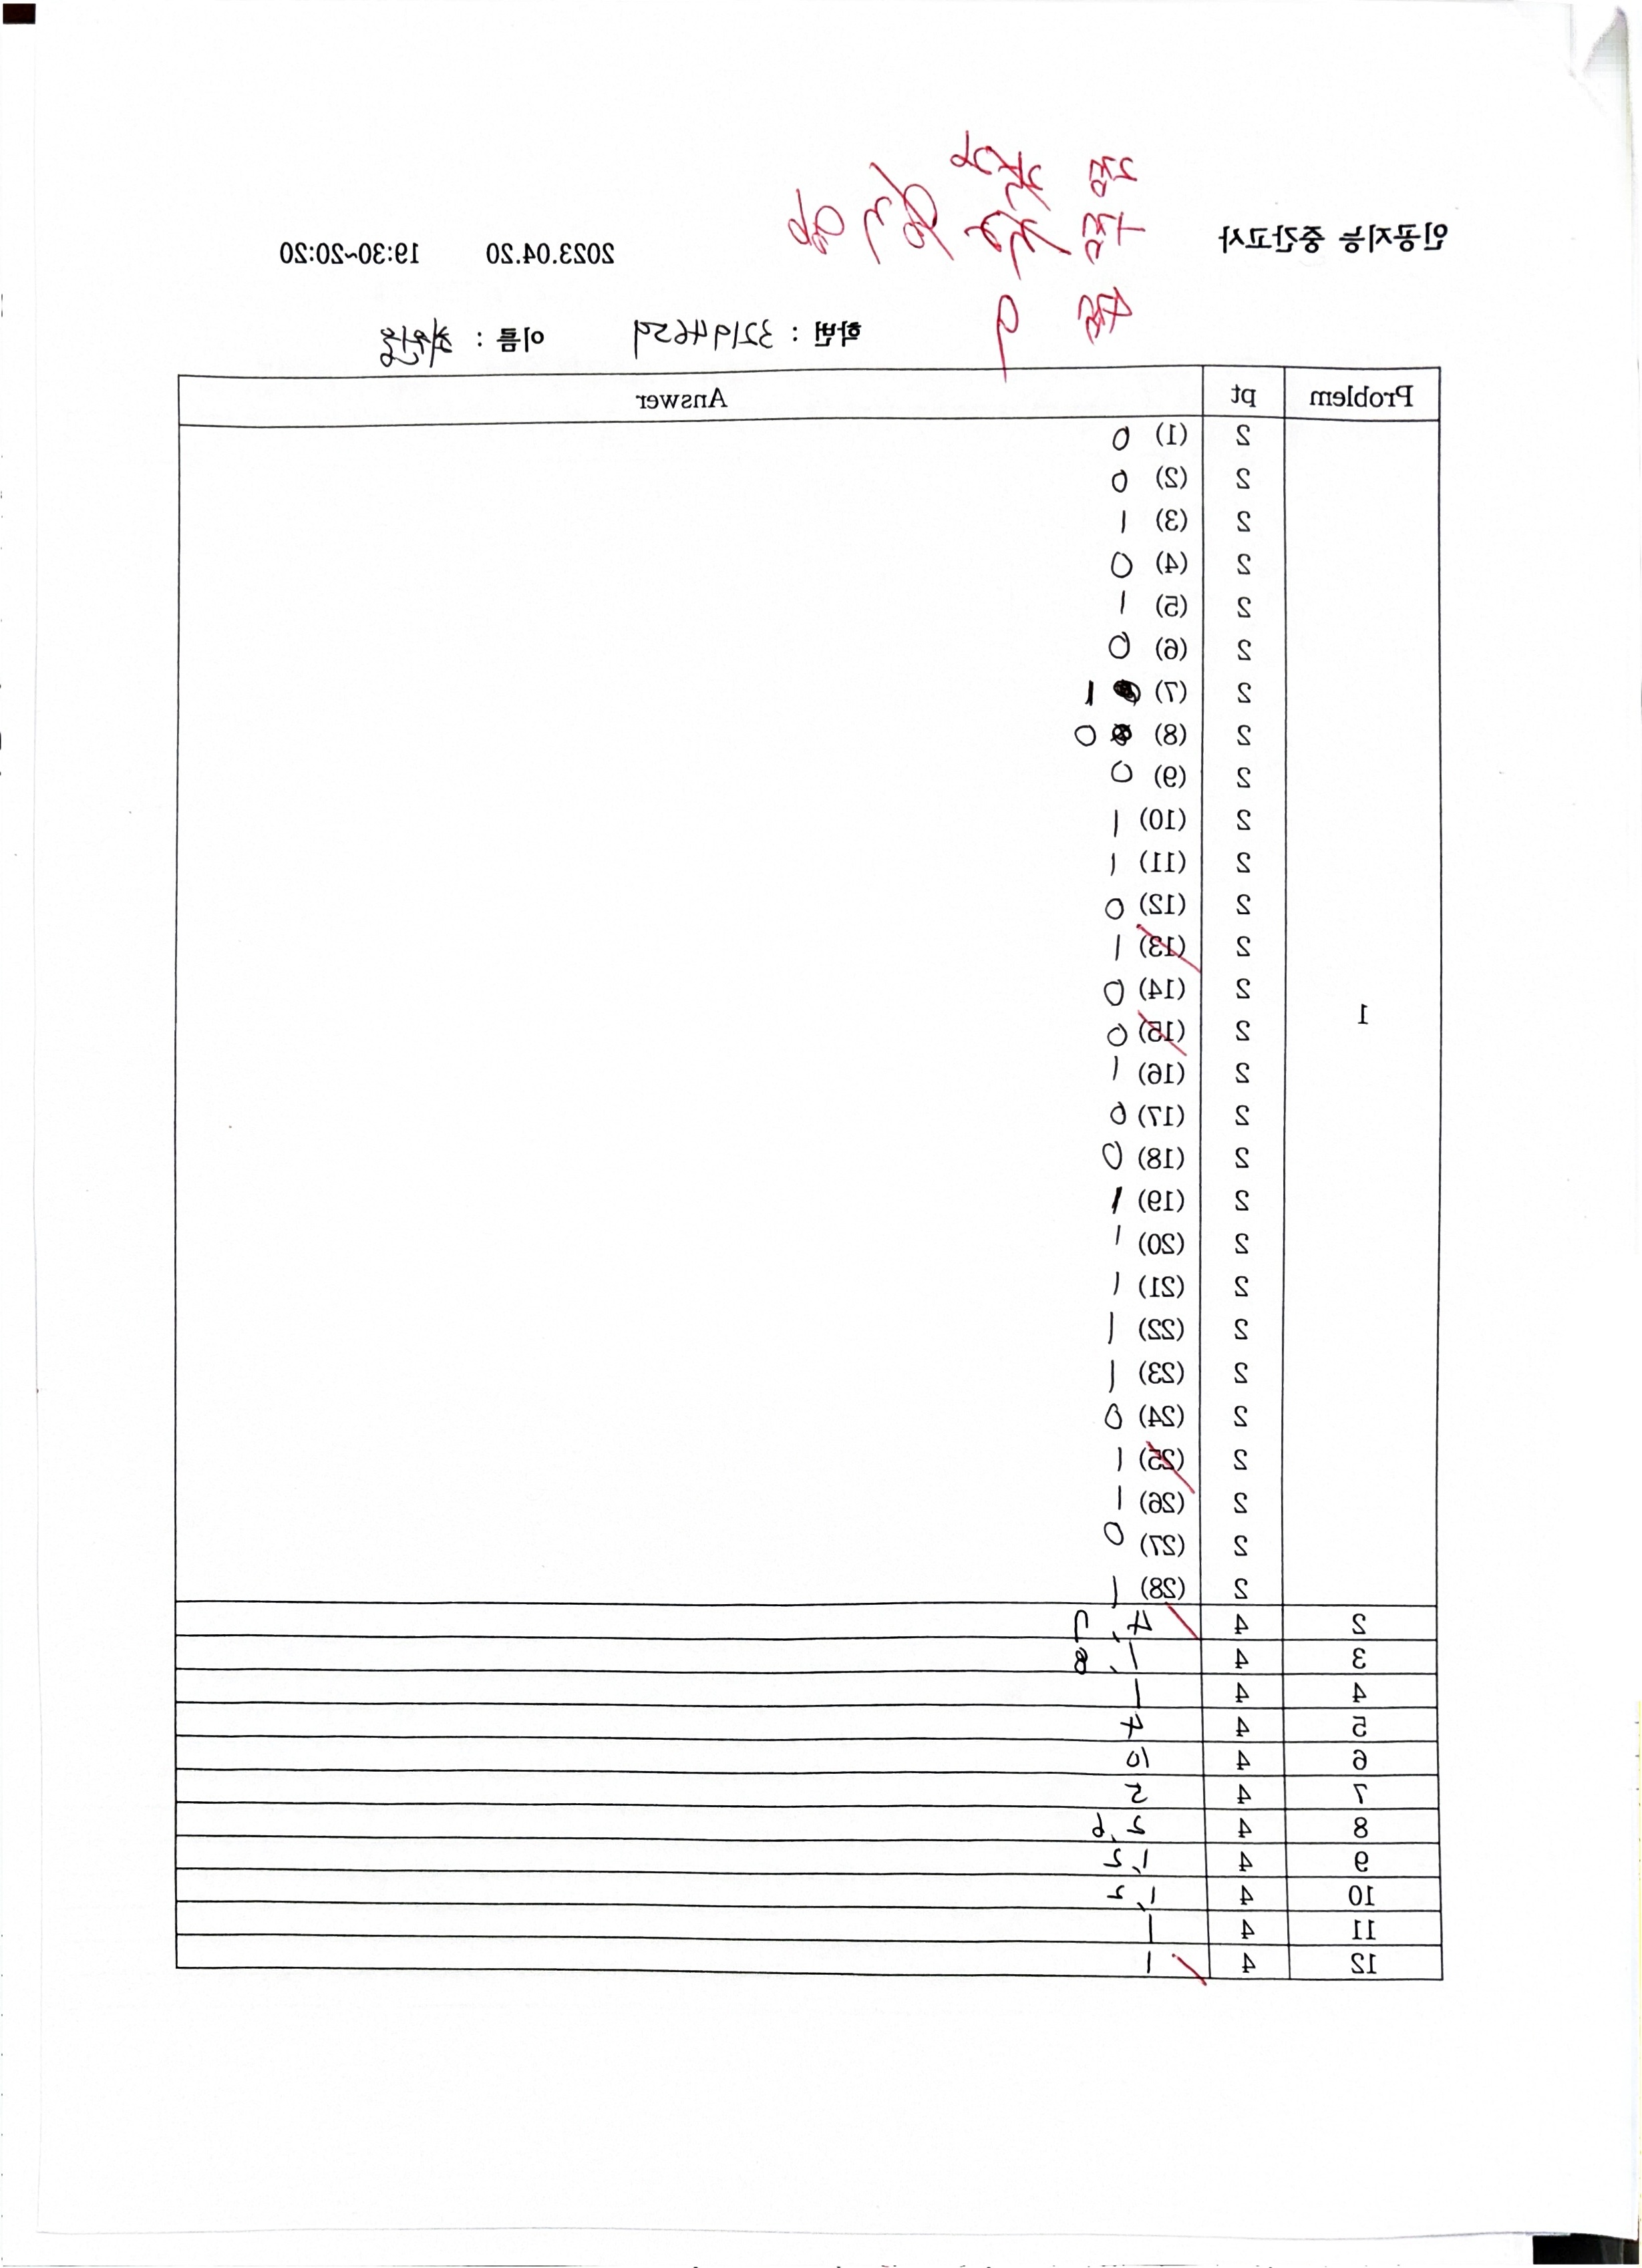 인공지능 중간고사 2023.04.20 19:30~20:20
학번 : 32194659 이름 :
Problem pt Answer
1
2 (1) 0
2 (2) 0
2 (3) 1
2 (4) 0
2 (5) 1
2 (6) 0
2 (7) 1
2 (8) 0
2 (9) 0
2 (10) 1
2 (11) 1
2 (12) 0
2 (13) 1
2 (14) 0
2 (15) 0
2 (16) 1
2 (17) 0
2 (18) 0
2 (19) 1
2 (20) 1
2 (21) 1
2 (22) 1
2 (23) 1
2 (24) 0
2 (25) 1
2 (26) 1
2 (27) 0
2 (28) 1
2 4 4,
3 4 1, 8
4 4 1
5 4 4
6 4 10
7 4 2
8 4 2, 6
9 4 1, 2
10 4 1, 2
11 4 1
12 4 1